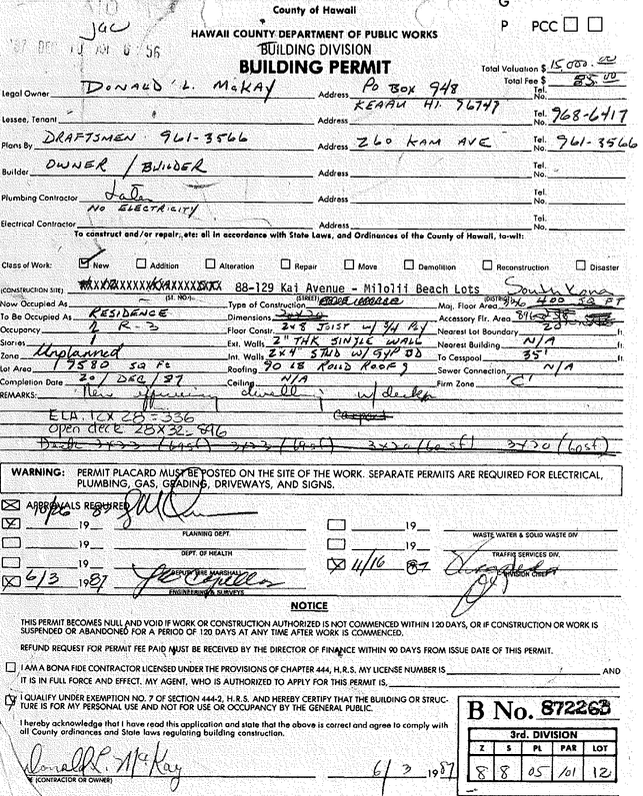 County of Hawaii
G
P PCC
JGC
HAWAII COUNTY DEPARTMENT OF PUBLIC WORKS
BUILDING DIVISION
BUILDING PERMIT
Total Valuation $ 15,000.00
Total Fee $ 85.00
Legal Owner DONALD L. McKAY Address PO BOX 948 Tel. No.
KEAAU HI. 96749
Lessee, Tenant Address Tel. No. 968-6417
Plans By DRAFTSMEN 961-3566 Address 260 KAM AVE Tel. No. 961-3566
Builder OWNER / BUILDER Address Tel. No.
Plumbing Contractor Later Address Tel. No.
Electrical Contractor NO ELECTRICITY Address Tel. No.
To construct and/or repair, etc: all in accordance with State Laws, and Ordinances of the County of Hawaii, to-wit:
Class of Work: New Addition Alteration Repair Move Demolition Reconstruction Disaster
(CONSTRUCTION SITE) 88-129 Kai Avenue - Milolii Beach Lots South Kona
(ST. NO.) (STREET) (DISTRICT)
Now Occupied As Type of Construction Maj. Floor Area 400 SQ FT
To Be Occupied As RESIDENCE Dimensions Accessory Flr. Area 896
Occupancy R-3 Floor Constr. 2x8 JOIST W/ 3/4 PLY Nearest Lot Boundary 20 ft.
Stories 1 Ext. Walls 2" THK SINGLE WALL Nearest Building N/A ft.
Zone Unplanned Int. Walls 2x4" STUD W/ GYP BD To Cesspool 35' ft.
Lot Area 9580 SQ FT Roofing 90 LB ROLLD ROOF'G Sewer Connection N/A
Completion Date 20 / DEC / 87 Ceiling N/A Firm Zone 'C'
REMARKS: New dwelling w/ deck
ELA. 12 X 28 = 336 Carport
Open deck 28X32 = 896
WARNING: PERMIT PLACARD MUST BE POSTED ON THE SITE OF THE WORK. SEPARATE PERMITS ARE REQUIRED FOR ELECTRICAL,
PLUMBING, GAS, GRADING, DRIVEWAYS, AND SIGNS.
APPROVALS REQUIRED
10/26 1987
PLANNING DEPT. 19 WASTE WATER & SOLID WASTE DIV
19 DEPT. OF HEALTH 19 TRAFFIC SERVICES DIV.
19 DEPUTY FIRE MARSHALL 11/16 87 DIVISION CHIEF
6/3 1987 ENGINEERING & SURVEYS
NOTICE
THIS PERMIT BECOMES NULL AND VOID IF WORK OR CONSTRUCTION AUTHORIZED IS NOT COMMENCED WITHIN 120 DAYS, OR IF CONSTRUCTION OR WORK IS
SUSPENDED OR ABANDONED FOR A PERIOD OF 120 DAYS AT ANY TIME AFTER WORK IS COMMENCED.
REFUND REQUEST FOR PERMIT FEE PAID MUST BE RECEIVED BY THE DIRECTOR OF FINANCE WITHIN 90 DAYS FROM ISSUE DATE OF THIS PERMIT.
I AM A BONA FIDE CONTRACTOR LICENSED UNDER THE PROVISIONS OF CHAPTER 444, H.R.S. MY LICENSE NUMBER IS AND
IT IS IN FULL FORCE AND EFFECT. MY AGENT, WHO IS AUTHORIZED TO APPLY FOR THIS PERMIT IS,
I QUALIFY UNDER EXEMPTION NO. 7 OF SECTION 444-2, H.R.S. AND HEREBY CERTIFY THAT THE BUILDING OR STRUC-
TURE IS FOR MY PERSONAL USE AND NOT FOR USE OR OCCUPANCY BY THE GENERAL PUBLIC.
I hereby acknowledge that I have read this application and state that the above is correct and agree to comply with
all County ordinances and State laws regulating building construction.
B No. 872263
3rd. DIVISION
Z S PL PAR LOT
8 8 05 101 12
Donald L. McKay 6/3 1987
(CONTRACTOR OR OWNER)